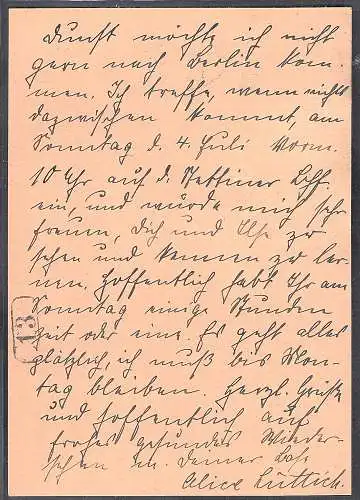 Dunst möchte ich nicht
gern nach Berlin kom-
men. Ich treffe, wenn nichts
dazwischen kommt, am
Sonntag d. 4. Juli Vorm.
10 Uhr auf d. Stettiner Bhf.
ein, und würde mich sehr
freuen, Dich und Ilse zu
sehen und kennen zu ler-
nen. Hoffentlich habt Ihr am
Sonntag einige Stunden
Zeit oder eine. Es geht alles
plötzlich, ich muß bis Mon-
tag bleiben. Herzl. Grüße
und hoffentlich auf
frohes gesundes Wieder-
sehen m. Deiner
Alice Lüttich.
13